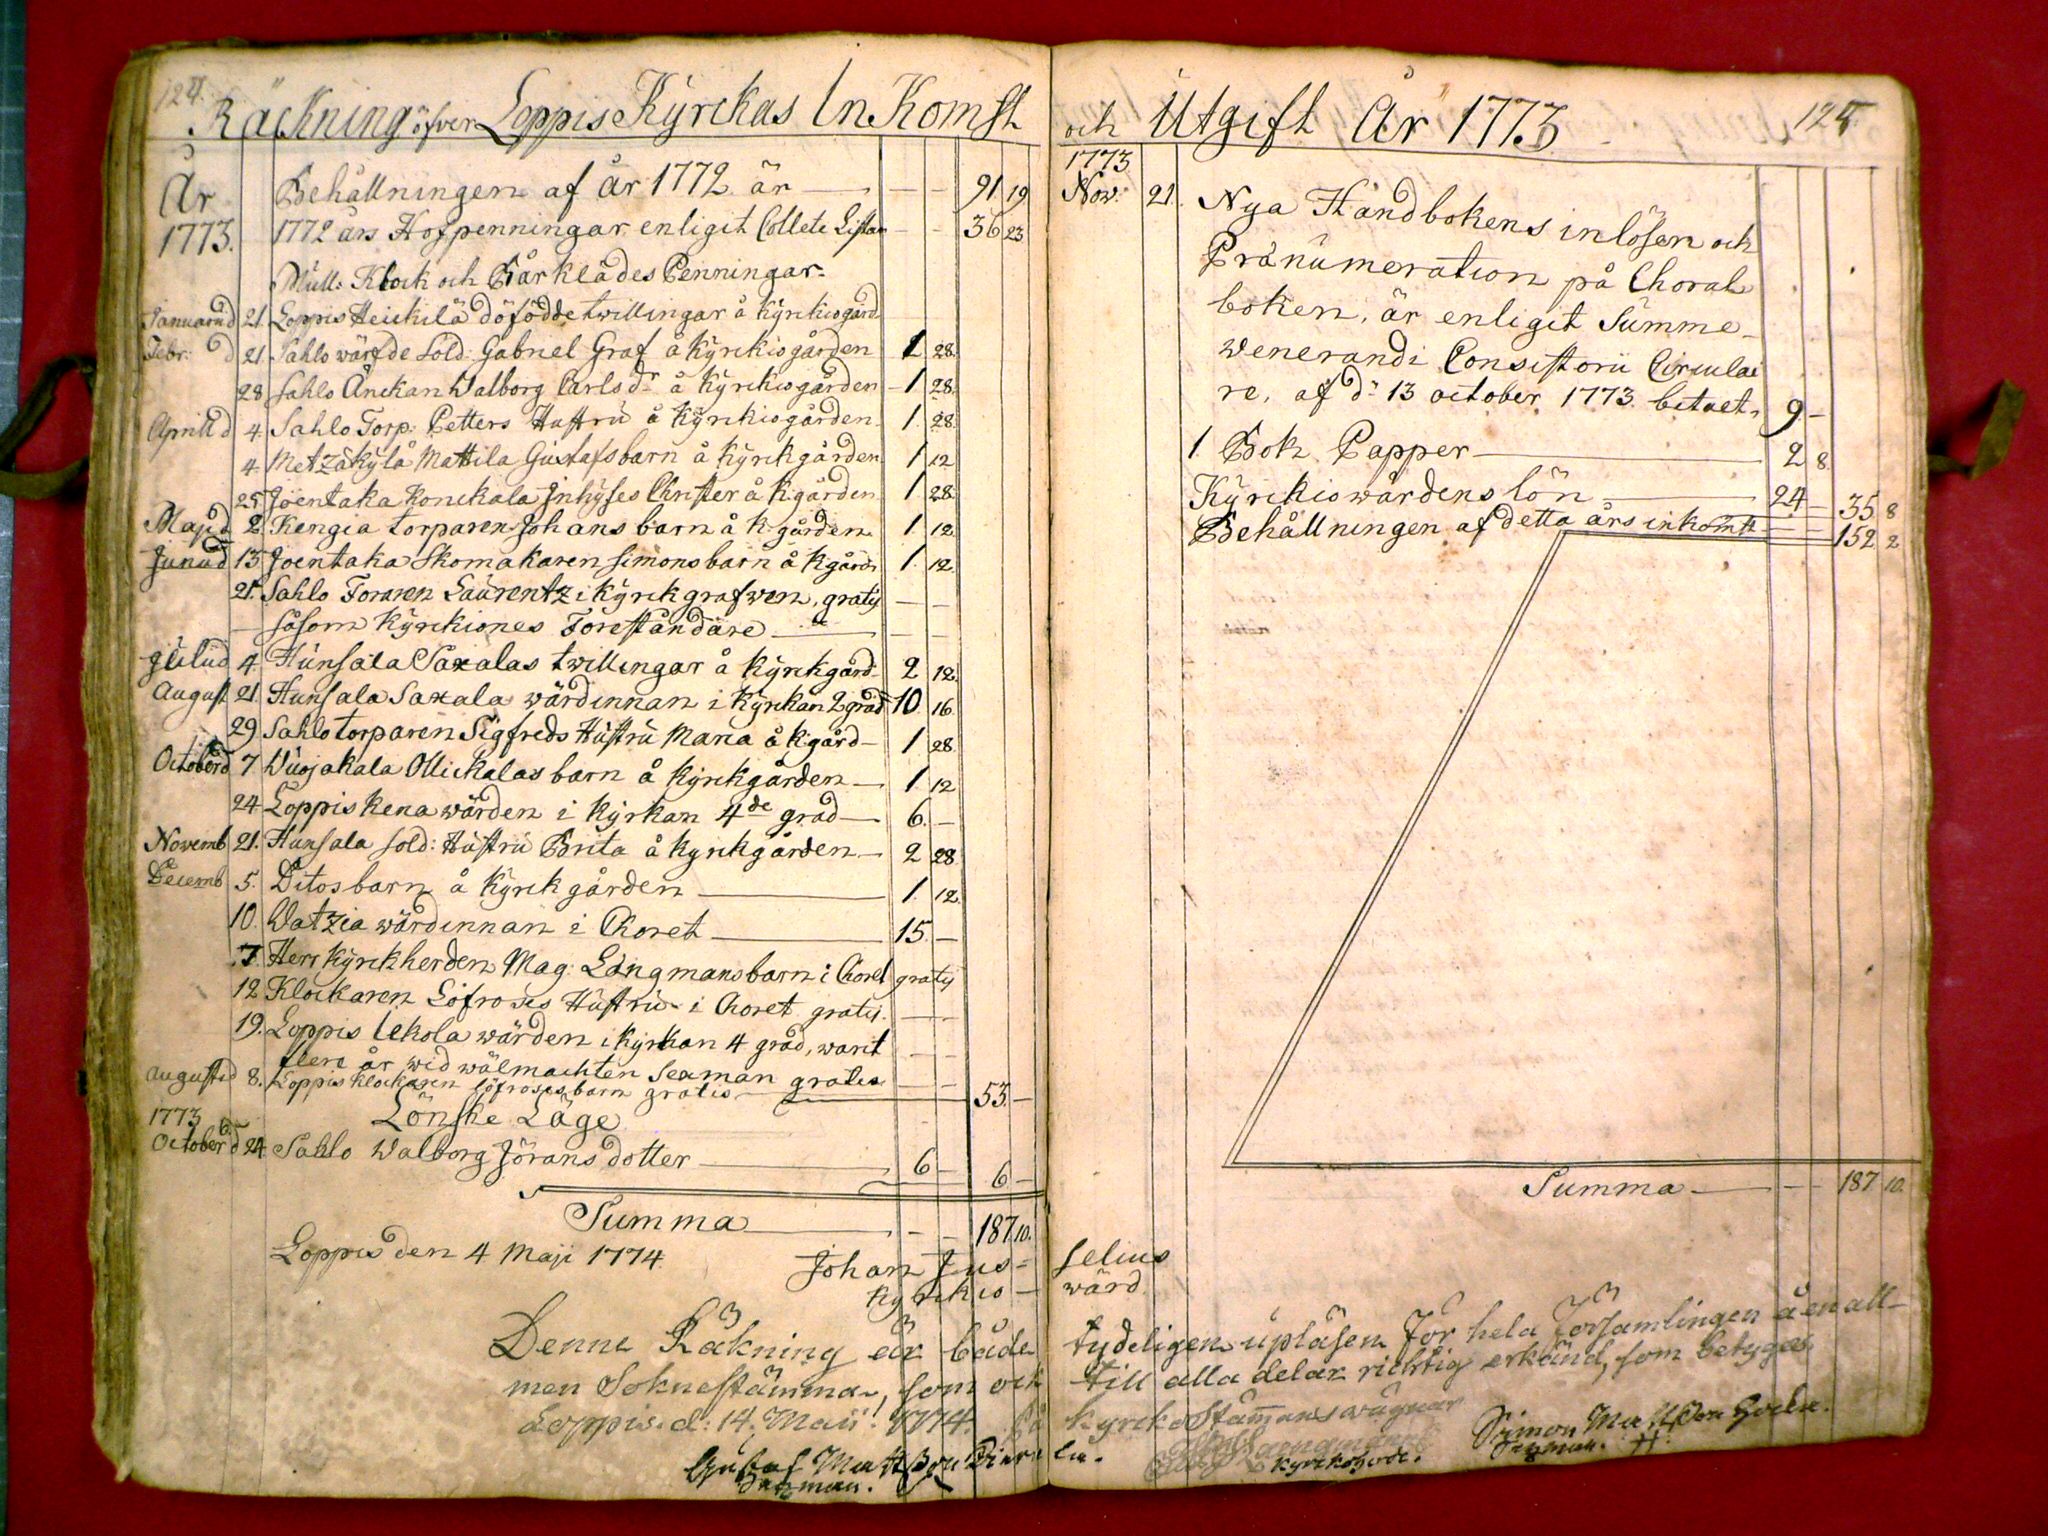 124.
Räckning öfver Loppis Kyrckas InKomst
År Behållningen af år 1772 är — — 91. 19
1773. 1772 års Hofpenningar enligit Collete Listan — — 36 23
Mull: Klock och Bårklädes Penningar.
Januarii d 21. Loppis Heickilä döfödde twillingar å kyrkiogård
Febr: d 21. Sahlo wärfde Sold: Gabriel Graf å Kyrckiogården 1 28.
28 Sahlo Änckan Walborg Carlsdr å Kyrckiogården — 1 28.
Aprill d 4. Sahlo Torp: Petters Hustru å Kyrkiogården. 1. 28.
4 Metzäkylä Mattila Gustafs barn å kyrckgården 1 12
25 Joentaka Konckala Inhyses Christer å k:gården 1 28.
Maji d 2. Kengia torparen Johans barn å k-gården. 1. 12.
Junii d 13 Joentaka Skomakaren Simons barn å kgård. 1. 12.
21. Sahlo Foraren Laurentz i kyrckgrafwen, gratis — —
såsom Kyrckiones Föreståndare — — —
Julii d 4. Hunsala Saxalas twillingar å kyrckgård. 2 12.
August 21. Hunsala Saxala wärdinnan i Kyrckan 2 grad 10. 16.
29. Sahlo torparen Sigfreds Hustru Maria å kgård — 1 28.
October d 7 Wuojakala Ollickalas barn å kyrckgården — 1 12
24 Loppis Kena wärden i Kyrkan 4de grad — 6. —
Novemb 21. Hunsala sold: Hustru Brita å kyrckgården — 2 28
Decemb 5. Ditos barn å kyrckgården — 1. 12.
10. Watzia wärdinnan i Choret — 15. —
7. Herr Kyrckherden Mag: Långmans barn i Choret gratis
12 Klockaren Löfroses Hustru i Choret gratis. — —
19. Loppis Uckola wärden i kyrkan 4 grad, warit — —
flere år wid wälmachten Sexman gratis — —
Augusti d 8. Loppis klockaren Löfroses barn gratis — 53. —
1773 Lönske Läge
October d 24 Sahlo Walborg Jöransdotter — 6 — 6 —
Summa — — — 187 10.
Loppis den 4 Maji 1774.
Johan Jus=
kyrckio —
Denne Räkning är både
men Soknestämma, som ock
Loppis. d: 14. Maii 1774. på
Gustaf Mattsson Piere
Sexman.
och Utgift År 1773
125.
1773
Nov: 21. Nya Handbokens inlösen och
Pränumeration på Choral
boken, är enligit Summe
Venerandi Consistorii Circulai
re, af d: 13 october 1773. betaet. 9 —
1. Bok Papper — 2 8.
Kyrckiowärdens lön — 24 — 35 8
Behållningen af detta års inkomst — — 152 2
Summa — — — 187 10.
selius
wärd.
tydeligen upläsen för hela Församlingen å en all-
till alla delar richtig erkänd, som betygas
kyrckostämmans wägnar
Kyrckoherde.
Simon Mattsson
Sexman.
la.